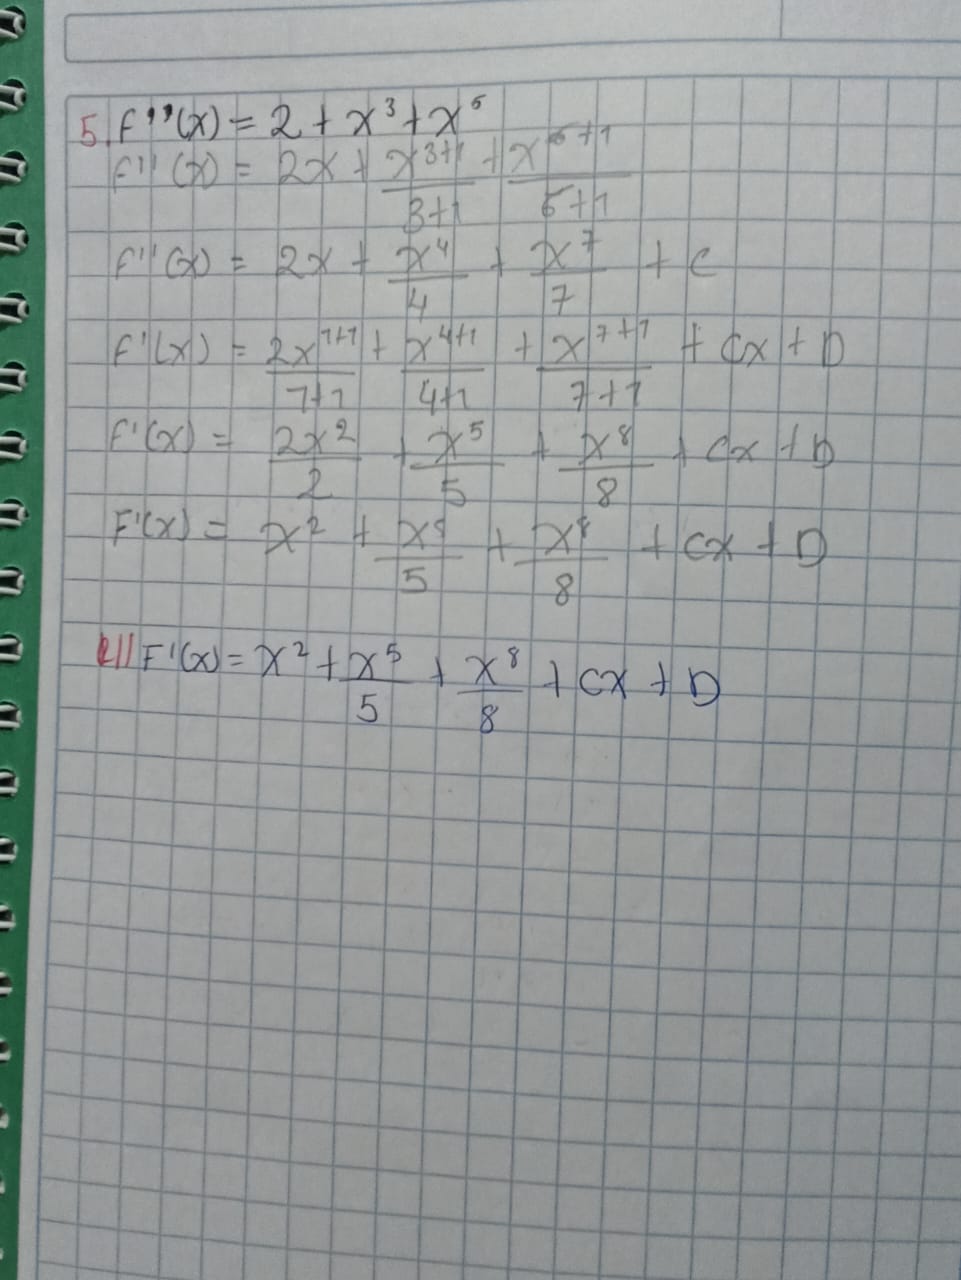 5. F'''(x) = 2 + x³ + x⁶
F''(x) = 2x + x³⁺¹/3+1 + x⁶⁺¹/6+1
F''(x) = 2x + x⁴/4 + x⁷/7 + C
F'(x) = 2x¹⁺¹/1+1 + x⁴⁺¹/4+1 + x⁷⁺¹/7+1 + Cx + D
F'(x) = 2x²/2 + x⁵/5 + x⁸/8 + Cx + D
F'(x) = x² + x⁵/5 + x⁸/8 + Cx + D
R// F'(x) = x² + x⁵/5 + x⁸/8 + Cx + D